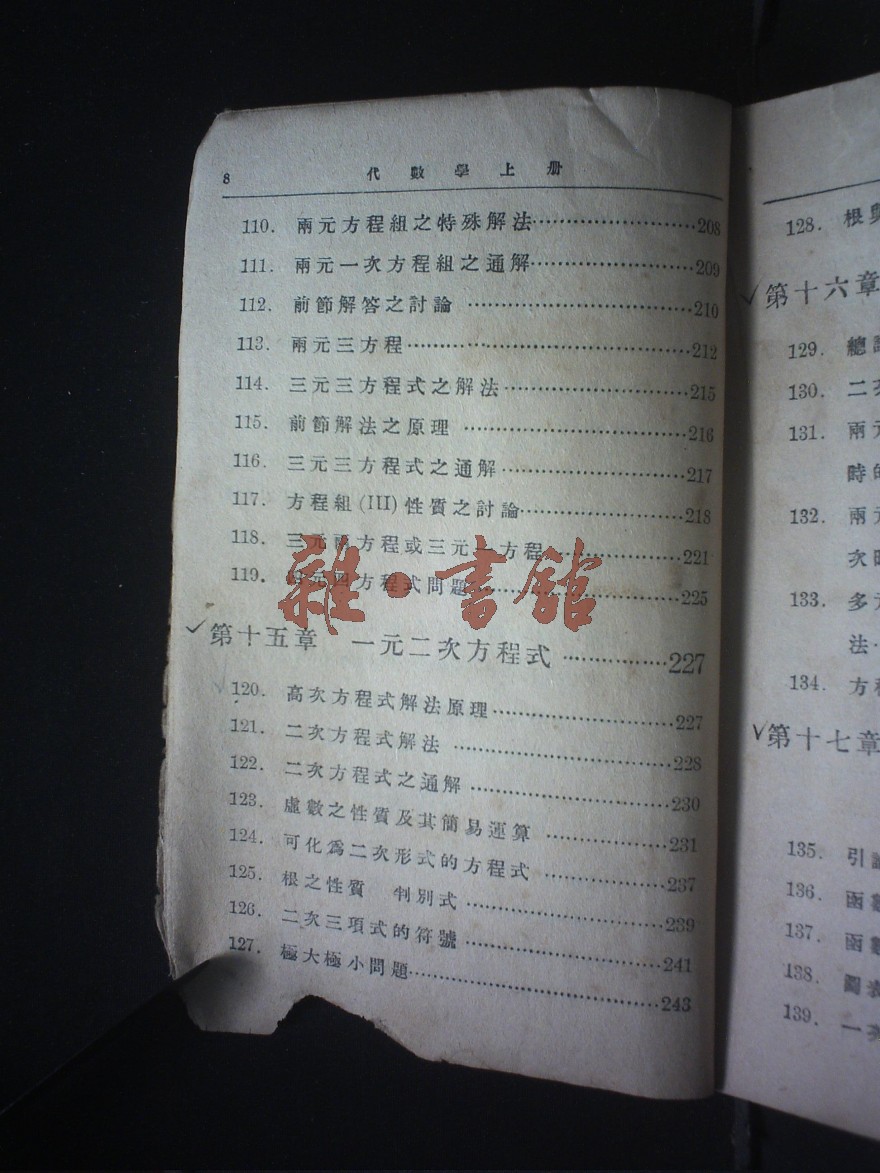 8 代數學上册
110. 兩元方程組之特殊解法……208
111. 兩元一次方程組之通解……209
112. 前節解答之討論……210
113. 兩元三方程……212
114. 三元三方程式之解法……215
115. 前節解法之原理……216
116. 三元三方程式之通解……217
117. 方程組(III)性質之討論……218
118. 三元兩方程或三元一方程……221
119. 四元四方程式問題……225
雜·書館
第十五章 一元二次方程式……227
120. 高次方程式解法原理……227
121. 二次方程式解法……228
122. 二次方程式之通解……230
123. 虛數之性質及其簡易運算……231
124. 可化爲二次形式的方程式……237
125. 根之性質 判別式……239
126. 二次三項式的符號……241
127. 極大極小問題……243
128. 根與
第十六章
129. 總
130. 二次
131. 兩元
時的
132. 兩元
次
133. 多元
法
134. 方程
第十七章
135. 引論
136. 函數
137. 函數
138. 圖表
139. 一次